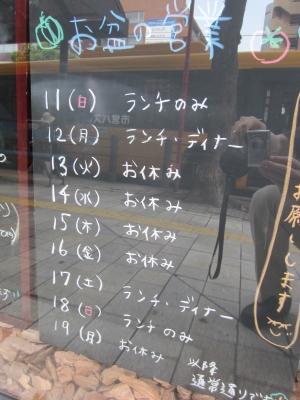 お盆の営業
11(日) ランチのみ
12(月) ランチ・ディナー
13(火) お休み
14(水) お休み
15(木) お休み
16(金) お休み
17(土) ランチ・ディナー
18(日) ランチのみ
19(月) お休み
以降
通常通りです
お願いします